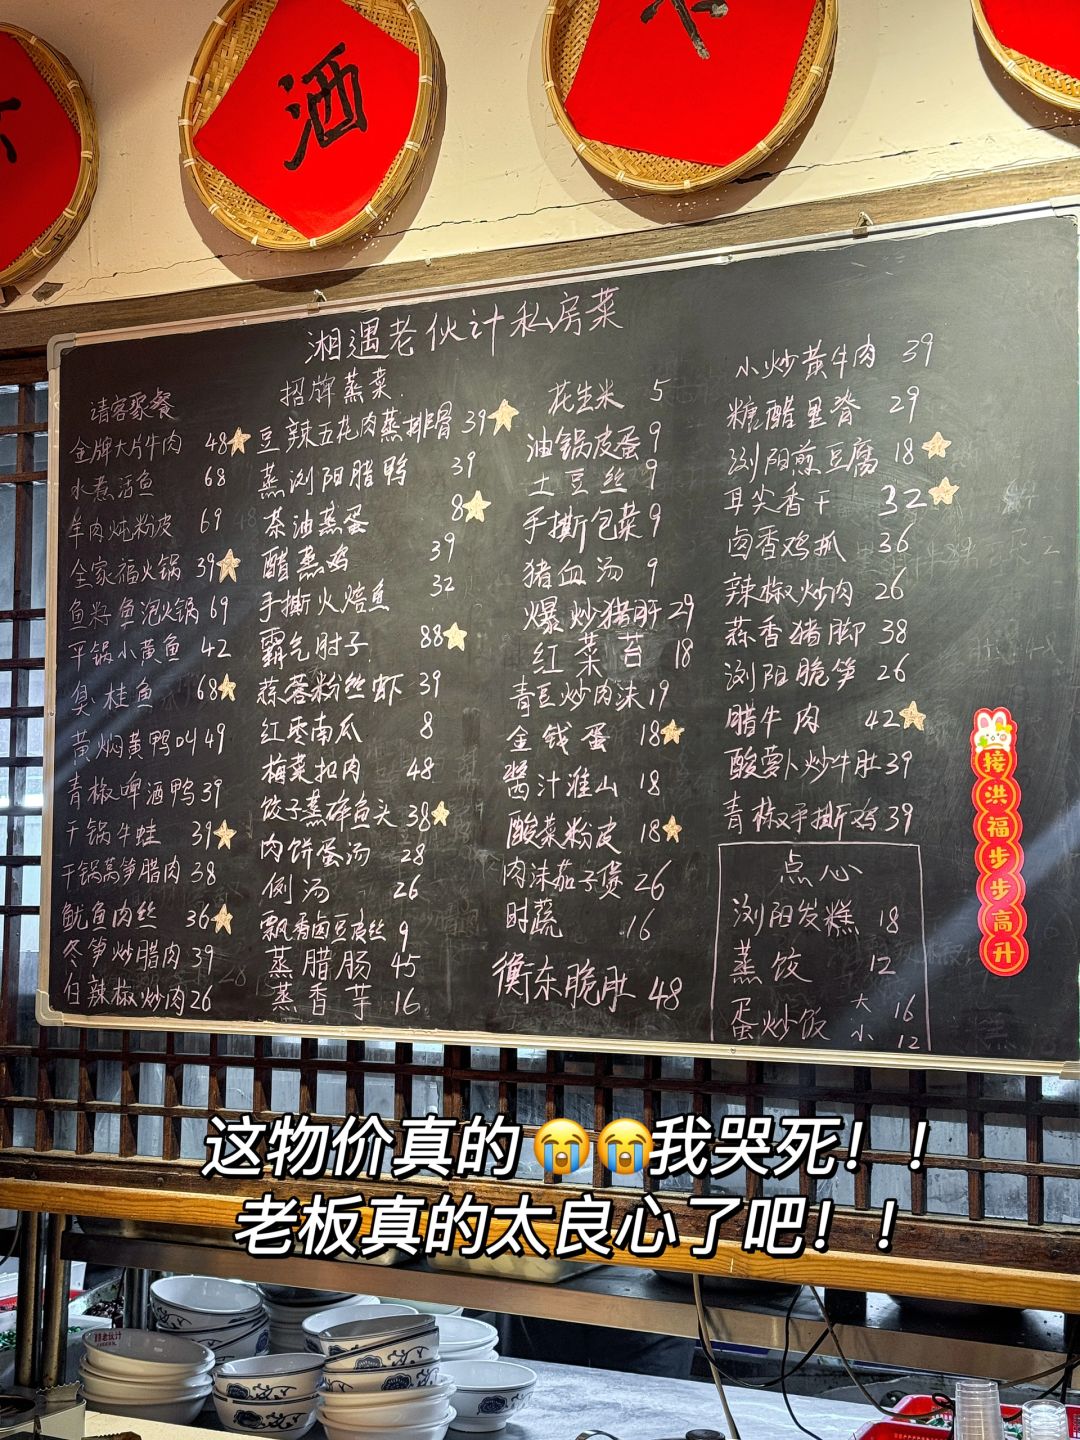 酒
湘遇老伙计私房菜
请客聚餐
金牌大片牛肉 48
水煮活鱼 68
羊肉炖粉皮 69
全家福火锅 39
鱼籽鱼泡火锅 69
平锅小黄鱼 42
臭桂鱼 68
黄焖黄鸭叫 49
青椒啤酒鸭 39
干锅牛蛙 39
干锅莴笋腊肉 38
鱿鱼肉丝 36
冬笋炒腊肉 39
白辣椒炒肉 26
招牌蒸菜
豆辣五花肉蒸排骨 39
蒸浏阳腊鸭 39
茶油蒸蛋 8
醋蒸鸡 39
手撕火焙鱼 32
霸气肘子 88
蒜蓉粉丝虾 39
红枣南瓜 8
梅菜扣肉 48
饺子蒸碎鱼头 38
肉饼蛋汤 28
例汤 26
飘香卤豆皮丝 9
蒸腊肠 45
蒸香芋 16
花生米 5
油锅皮蛋 9
土豆丝 9
手撕包菜 9
猪血汤 9
爆炒猪肝 29
红菜苔 18
青豆炒肉沫 19
金钱蛋 18
酱汁淮山 18
酸菜粉皮 18
肉沫茄子煲 26
时蔬 16
衡东脆肚 48
小炒黄牛肉 39
糖醋里脊 29
浏阳煎豆腐 18
耳尖香干 32
卤香鸡抓 36
辣椒炒肉 26
蒜香猪脚 38
浏阳脆笋 26
腊牛肉 42
酸萝卜炒牛肚 39
青椒手撕鸡 39
点心
浏阳发糕 18
蒸饺 12
蛋炒饭 大 16
小 12
接洪福步步高升
这物价真的😭😭我哭死！！
老板真的太良心了吧！！
老伙计